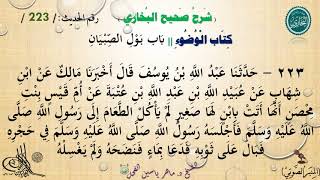 (شرح صحيح البخاري) رقم الحديث: / 223 /
كِتَابُ الْوُضُوءِ || بَاب بَوْلِ الصِّبْيَانِ
٢٢٣ - حَدَّثَنَا عَبْدُ اللَّهِ بْنُ يُوسُفَ قَالَ أَخْبَرَنَا مَالِكٌ عَنْ ابْنِ
شِهَابٍ عَنْ عُبَيْدِ اللَّهِ بْنِ عَبْدِ اللَّهِ بْنِ عُتْبَةَ عَنْ أُمِّ قَيْسٍ بِنْتِ
مِحْصَنٍ أَنَّهَا أَتَتْ بِابْنٍ لَهَا صَغِيرٍ لَمْ يَأْكُلْ الطَّعَامَ إِلَى رَسُولِ اللَّهِ صَلَّى
اللَّهُ عَلَيْهِ وَسَلَّمَ فَأَجْلَسَهُ رَسُولُ اللَّهِ صَلَّى اللَّهُ عَلَيْهِ وَسَلَّمَ فِي حَجْرِهِ
فَبَالَ عَلَى ثَوْبِهِ فَدَعَا بِمَاءٍ فَنَضَحَهُ وَلَمْ يَغْسِلْهُ
ماهر ياسين الفحل